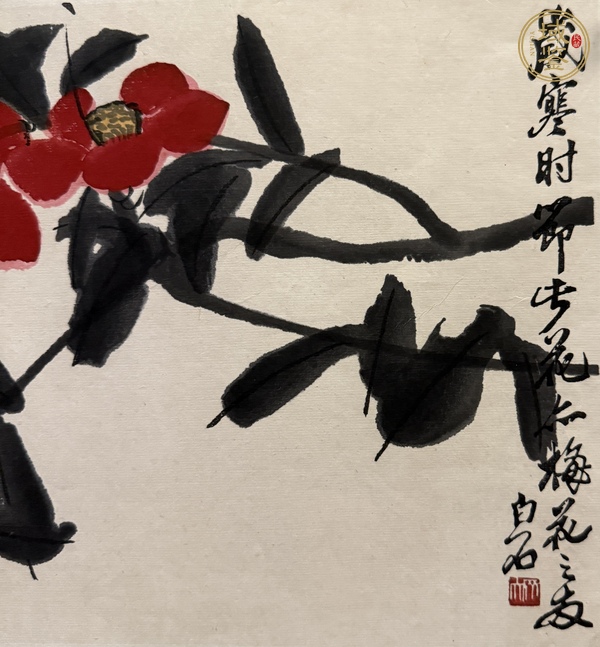 岁寒时节此花亦梅花之友
白石